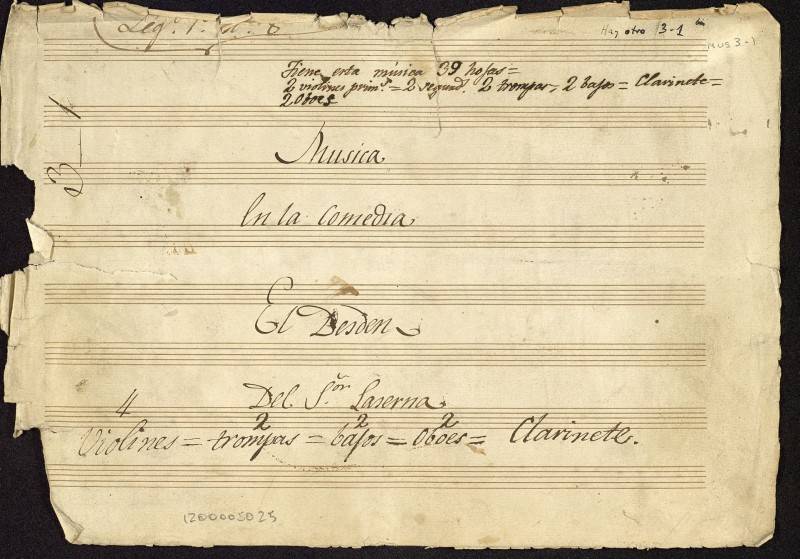 Leg.º 1.º n.º 8
Hay otra 3-1
MUS 3-1
Tiene esta música 39 hojas=
2 violines prim.s = 2 segund. 2 trompas = 2 bajos = Clarinete =
2 Oboes
3-1
Musica
En la Comedia
El Desden
Del S.or Laserna
4 2 2 2
Violines = trompas = bajos = Oboes = Clarinete.
1200005025